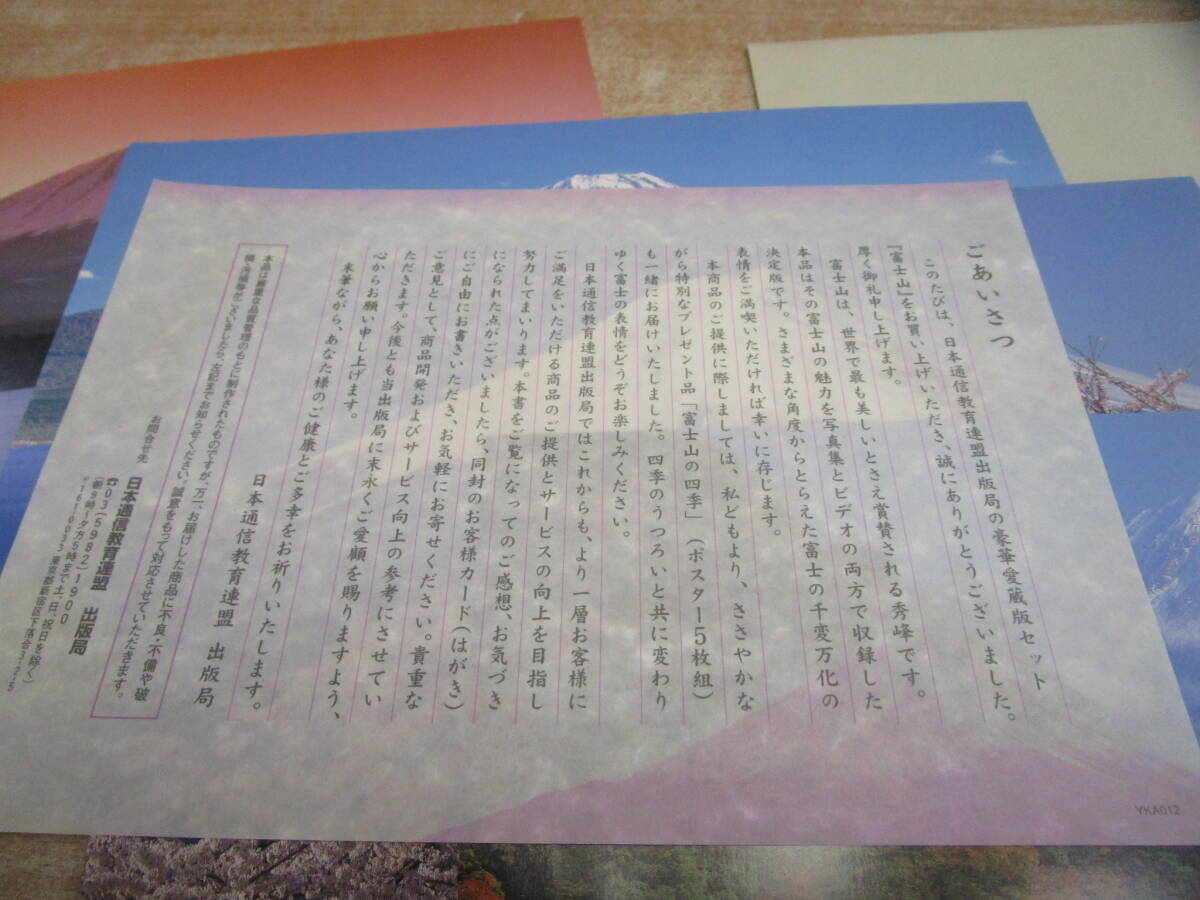 ごあいさつ
このたびは、日本通信教育連盟出版局の豪華愛蔵版セット
『富士山』をお買い上げいただき、誠にありがとうございました。
厚く御礼申し上げます。
富士山は、世界で最も美しいとさえ賞賛される秀峰です。
本品はその富士山の魅力を写真集とビデオの両方で収録した
決定版です。さまざまな角度からとらえた富士の千変万化の
表情をご満喫いただければ幸いに存じます。
本商品のご提供に際しましては、私どもより、ささやかな
がら特別なプレゼント品「富士山の四季」（ポスター5枚組）
も一緒にお届けいたしました。四季のうつろいと共に変わり
ゆく富士の表情をどうぞお楽しみください。
日本通信教育連盟出版局ではこれからも、より一層お客様に
ご満足をいただける商品のご提供とサービスの向上を目指し
努力してまいります。本書をご覧になってのご感想、お気づき
になられた点がございましたら、同封のお客様カード（はがき）
にご自由にお書きいただき、お気軽にお寄せください。貴重な
ご意見として、商品開発およびサービス向上の参考にさせてい
ただきます。今後とも当出版局に末永くご愛顧を賜りますよう、
心からお願い申し上げます。
末筆ながら、あなた様のご健康とご多幸をお祈りいたします。
日本通信教育連盟 出版局
本品は厳重な品質管理のもとに制作されたものですが、万一、お届けした商品に不良・不備や破
損・汚損等がございましたら、左記までお知らせください。誠意をもって対応させていただきます。
お問合せ先
日本通信教育連盟 出版局
☎03(5982)1900
(朝9時〜夕方5時まで土、日、祝日を除く)
〒161-0033 東京都新宿区下落合3-2-5
YKA012